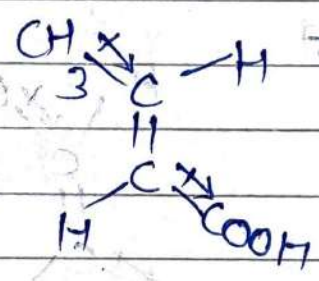 CH3 C H
||
H C COOH